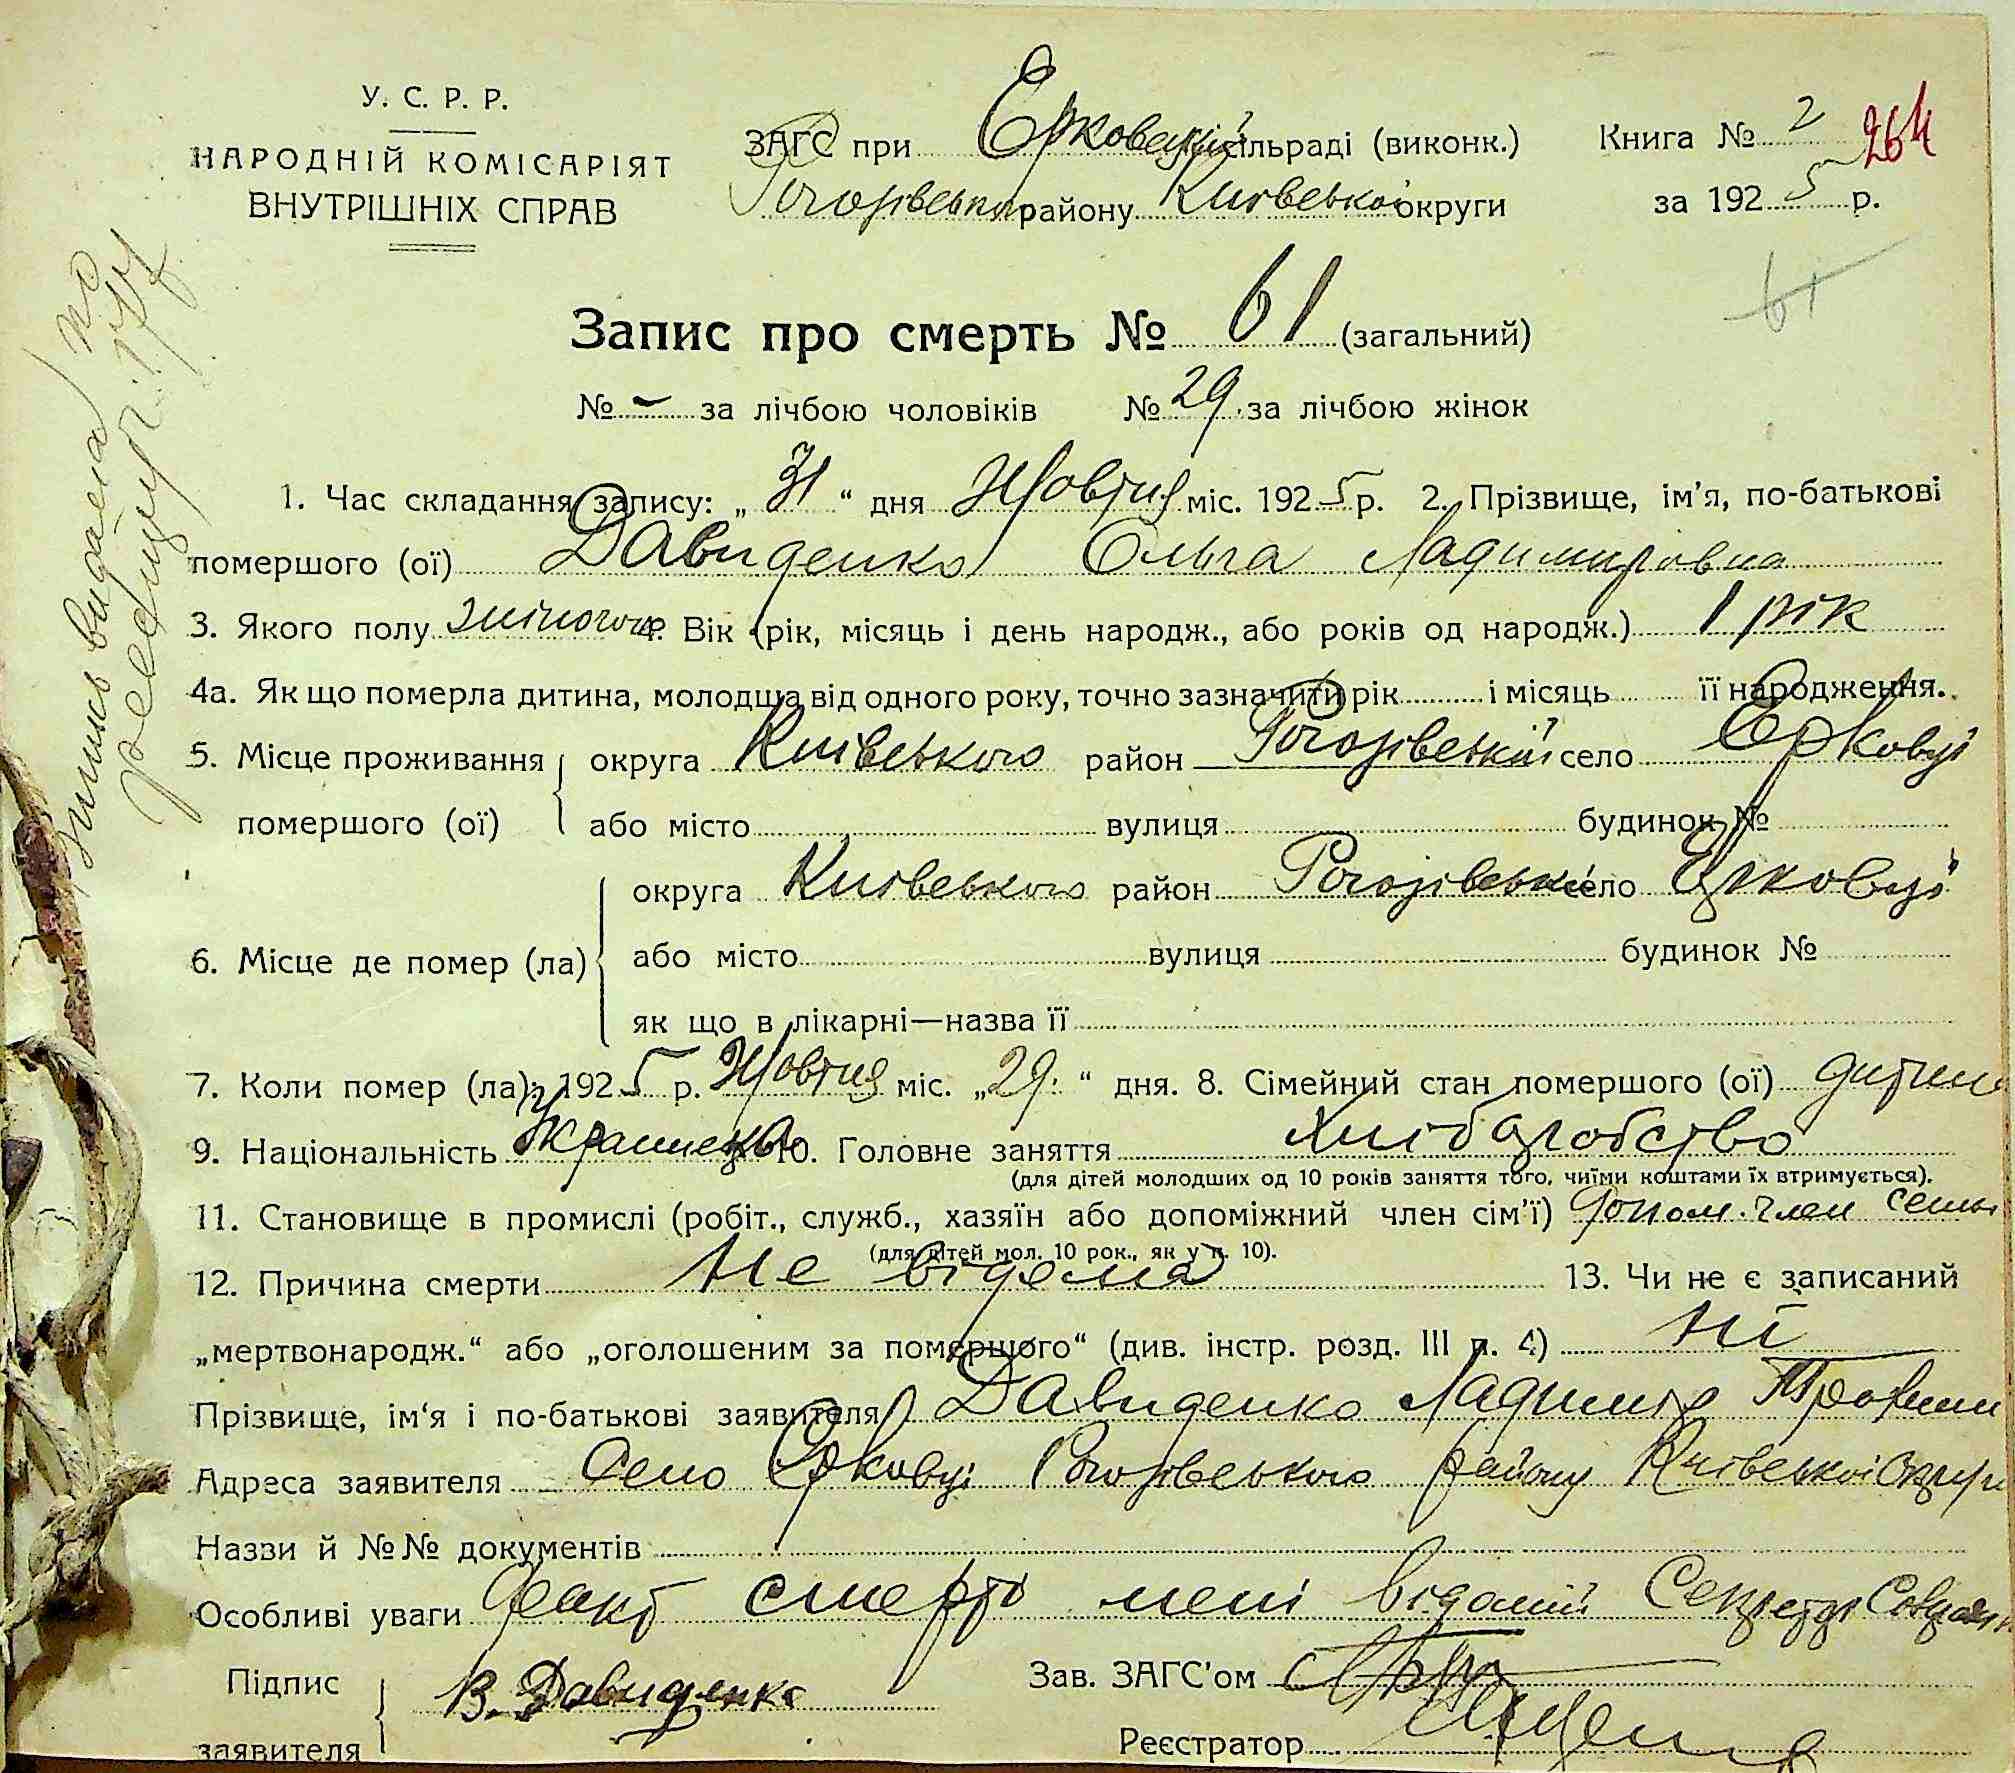 У. С. Р. Р.
НАРОДНІЙ КОМІСАРІЯТ
ВНУТРІШНІХ СПРАВ
ЗАГС при Ерковецькій сільраді (виконк.)
Рогозівського району Київської округи
Книга № 2 264
за 1925 р.
61
Запис про смерть № 61 (загальний)
№ – за лічбою чоловіків № 29 за лічбою жінок
1. Час складання запису: „31“ дня Жовтня міс. 1925 р. 2. Прізвище, ім'я, по-батькові
помершого (ої) Давиденко Ольга Ладимировна
3. Якого полу жіночого 4. Вік (рік, місяць і день народж., або років од народж.) 1 рік
4а. Як що померла дитина, молодша від одного року, точно зазначити рік і місяць її народження.
5. Місце проживання помершого (ої) округа Київського район Рогозівській село Ерковці
або місто вулиця будинок №
6. Місце де помер (ла) округа Київського район Рогозівській село Ерковці
або місто вулиця будинок №
як що в лікарні—назва її
7. Коли помер (ла): 1925 р. Жовтня міс. „29“ дня. 8. Сімейний стан помершого (ої) дитина
9. Національність Украинець 10. Головне заняття Хлібаробство
(для дітей молодших од 10 років заняття того, чиїми коштами їх втримується).
11. Становище в промислі (робіт., служб., хазяїн або допоміжний член сім'ї) допом. член семьі
(для дітей мол. 10 рок., як у п. 10).
12. Причина смерти Не відома 13. Чи не є записаний
„мертвонародж.“ або „оголошеним за помершого“ (див. інстр. розд. III п. 4) Ні
Прізвище, ім'я і по-батькові заявителя Давиденко Ладимір Трофим
Адреса заявителя Село Ерковці Рогозівського району Київської округи
Назви й №№ документів
Особливі уваги Факт смерті мені відомій Секретар
Підпис заявителя В. Давиденко
Зав. ЗАГС'ом
Реєстратор
Випись видана по